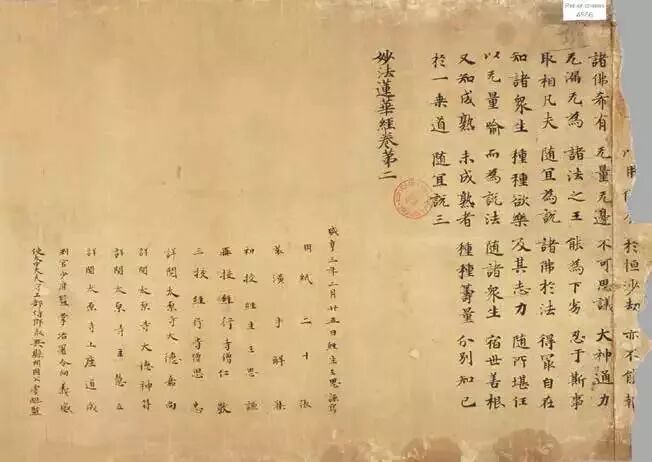 Pelliot chinois
於恒沙劫 亦不能報
諸佛希有 无量无邊 不可思議 大神通力
无漏无為 諸法之王 能為下劣 忍于斯事
取相凡夫 随宜為説 諸佛於法 得最自在
知諸衆生 種種欲樂 及其志力 随所堪任
以无量喻 而為説法 随諸衆生 宿世善根
又知成熟 未成熟者 種種籌量 分別知已
於一乗道 随宜説三
妙法蓮華經卷第二
咸亨三年二月廿五日經生王思謙寫
用紙二十張
裝潢手解集
初校經生王思謙
再校經行寺僧仁敬
三校經行寺僧思忠
詳閱太原寺大德嘉尚
詳閱太原寺大德神苻
詳閱太原寺主慧立
詳閱太原寺上座道成
判官少府監掌冶署令向義感
使太中大夫守工部侍郎永興縣開國公虞昶監